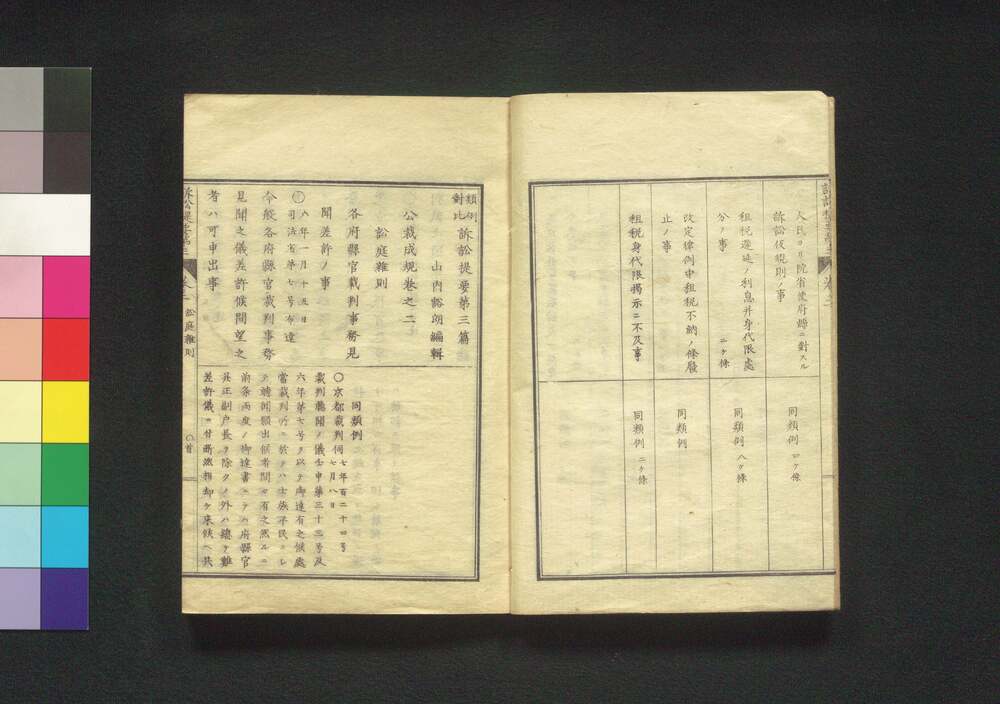 人民ヨリ院省使府縣ニ對スル
訴訟仮規則ノ事
同類例 四ケ條
租税遷延ノ利息并身代限處
分ノ事 二ケ條
同類例 八ケ條
改定律例中租税不納ノ條廢
止ノ事
同類例
租税身代限揭示ニ不及事
同類例 二ケ條
類例對比訴訟提要第三篇
山内豁朗編輯
公裁成規巻之二
訟庭雜則
各府縣官裁判事務見
聞差許ノ事
八年一月十五日
司法省第七号布達
今般各府縣官裁判事務
見聞之儀差許候間望之
者ハ可申出事
同類例
〇京都裁判伺 七年百二十四号
七月八日
裁判聽聞ノ儀壬申第三十三号及
六年第七号ヲ以テ御達有之候處
當裁判所ニ於テハ士族平民
テ聽聞願出候者間々有之然ルニ
前條兩度ノ御達書ニテハ府縣官
員正副戸長ヲ除クノ外ハ總テ難
差許儀
訟庭雜則